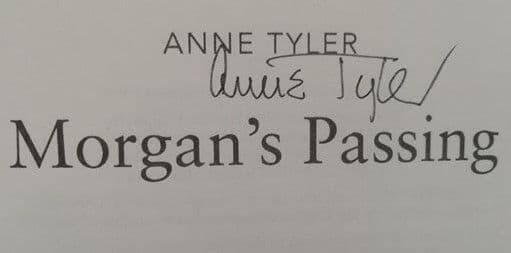 ANNE TYLER
Anne Tyler
Morgan's Passing